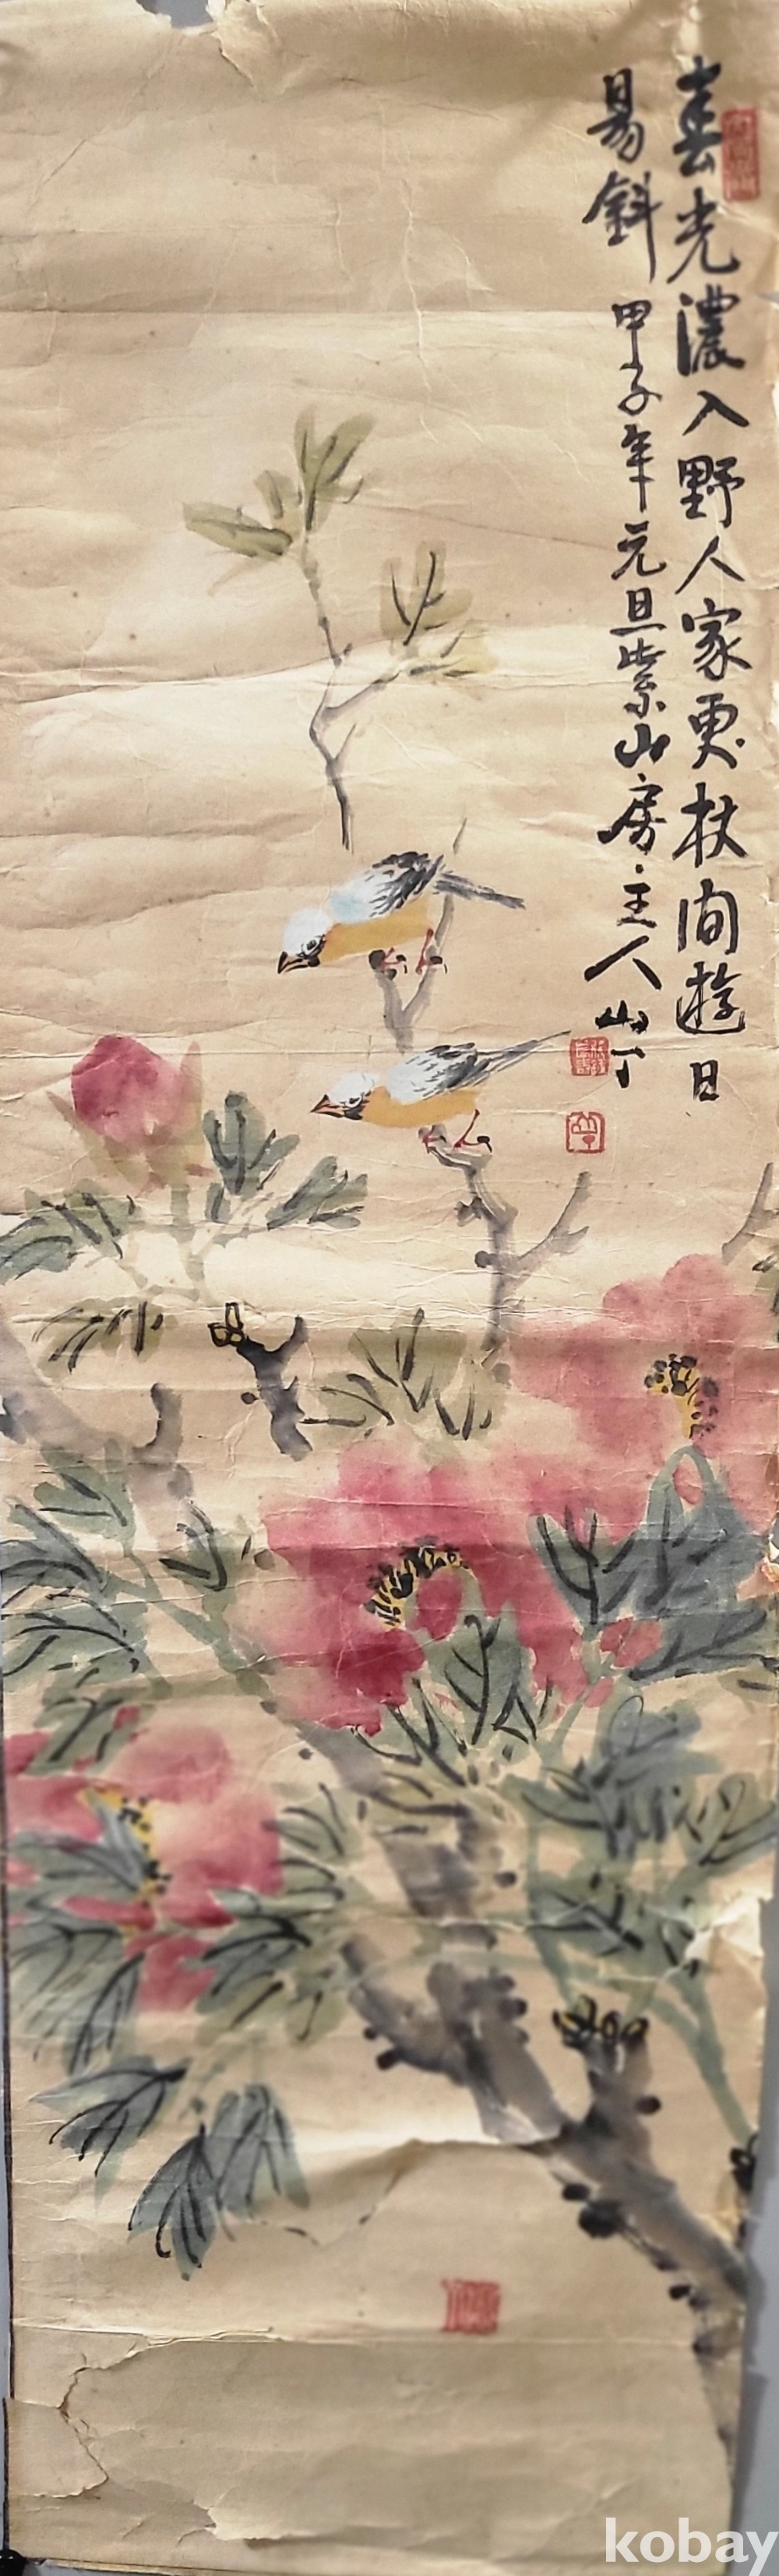 春光濃入野人家更杖閑遊日
易斜 甲子年元旦紫山房主人山丁
kobay